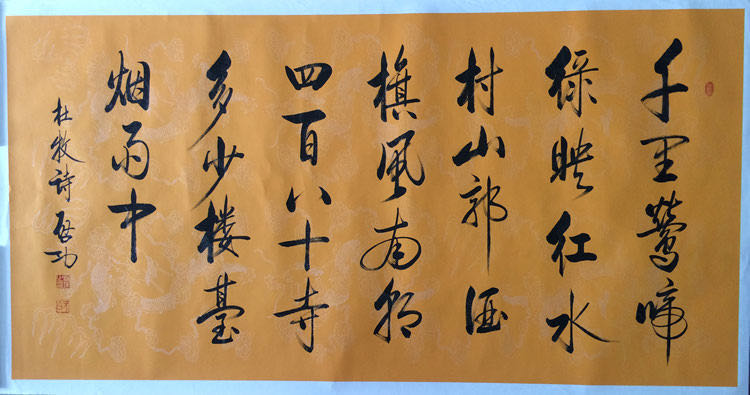 千里鶯啼
緑映红水
村山郭酒
旗風南朝
四百八十寺
多少楼臺
烟雨中
杜牧詩 启功